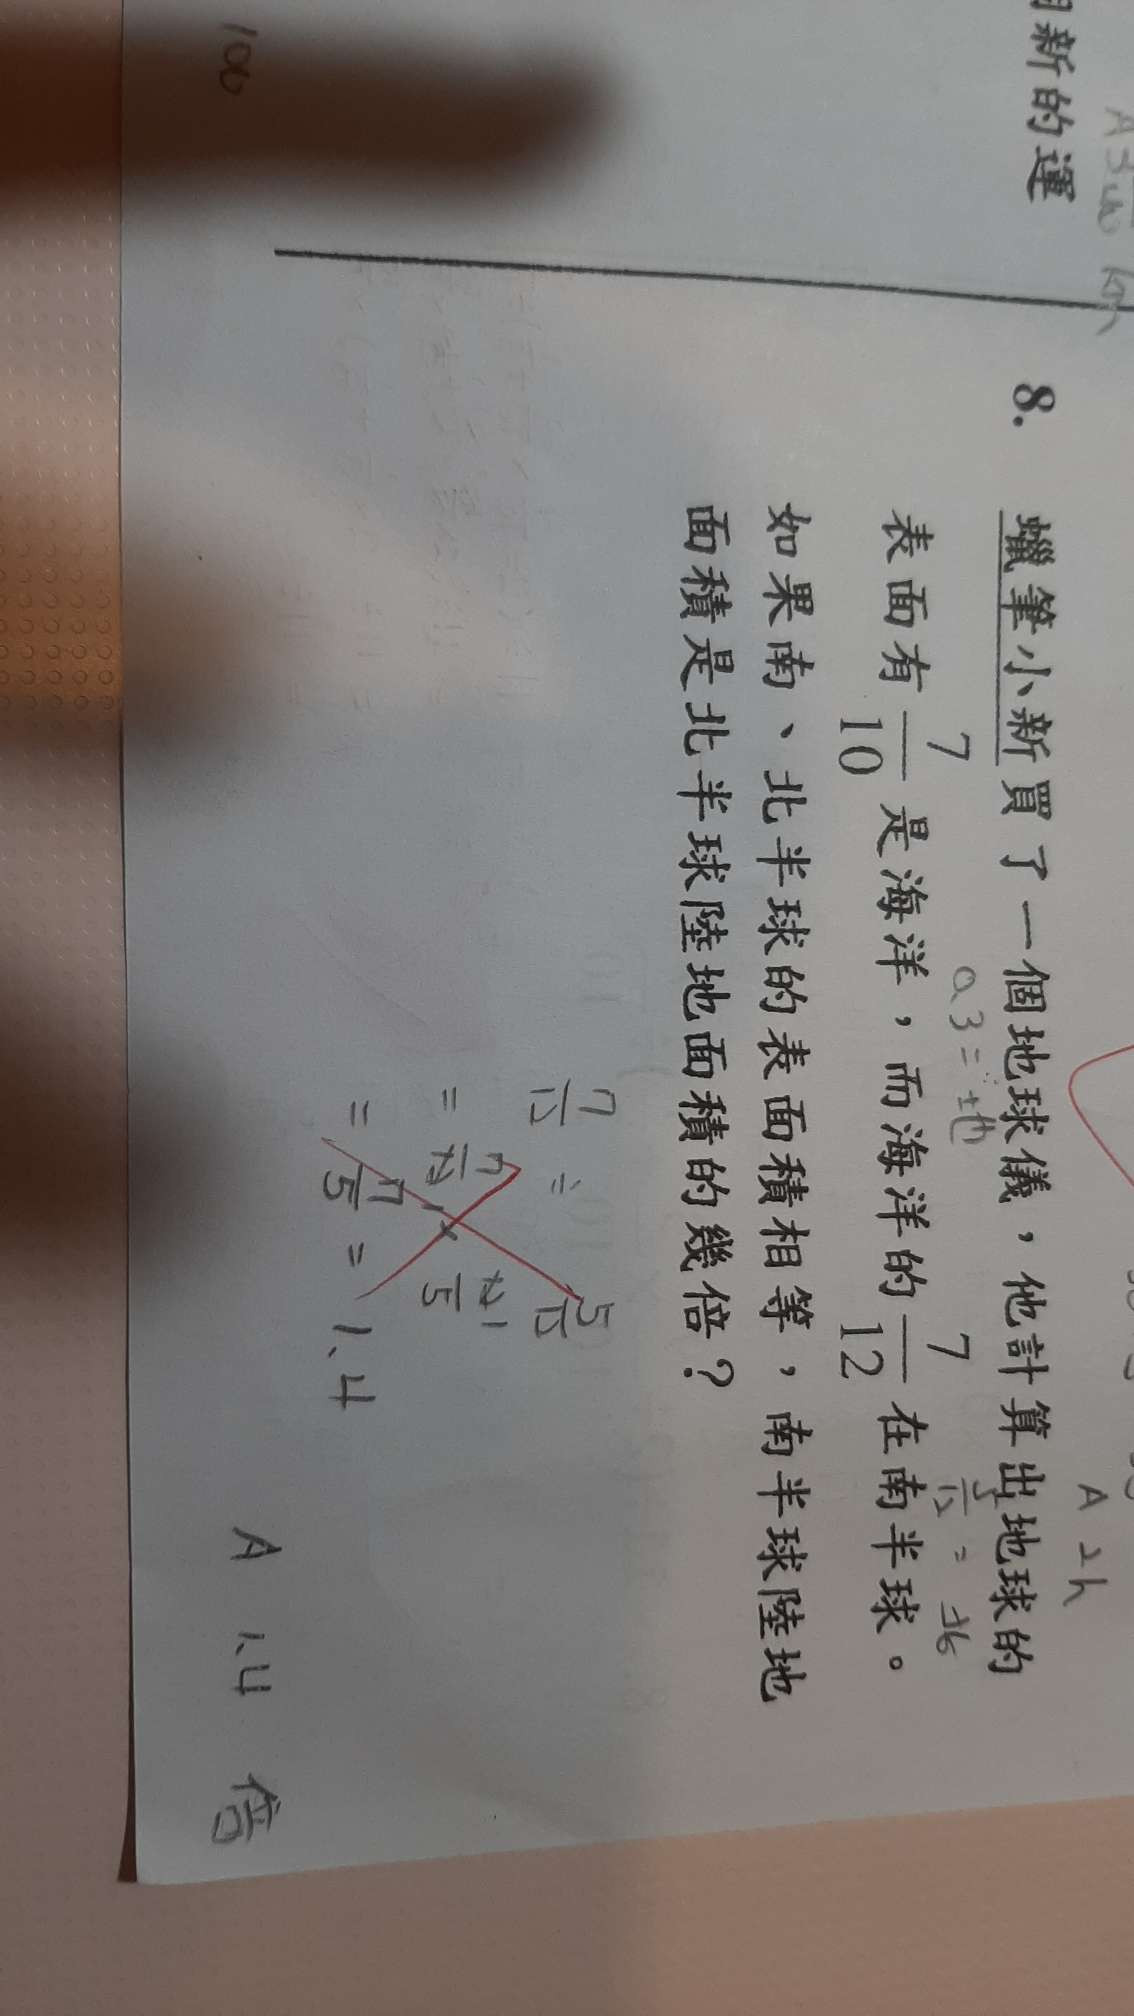 新的運
8. 蠟筆小新買了一個地球儀，他計算出地球的
表面有 7/10 是海洋，而海洋的 7/12 在南半球。
如果南、北半球的表面積相等，南半球陸地
面積是北半球陸地面積的幾倍？
0.3=地
5/12 = 北
A 2h
7/12 ÷ 5/12
= 7/12 × 12/5
= 7/5 = 1.4
A 1.4 倍
100